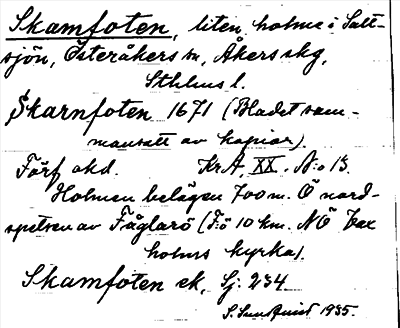 Skamfoten, liten holme i Salt-
sjön, Österåkers sn, Åkers skg,
Sthlms l.
Skamfoten 1671 (Bladet sam-
mansatt av kopior).
Förf. okd. KrA, XX. N:o 13.
Holmen belägen 700 m. Ö nord-
spetsen av Fåglarö (F:ö 10 km. NÖ Vax
holms kyrka).
Skamfoten ek, Sj: 234
S. Sundquist 1935.